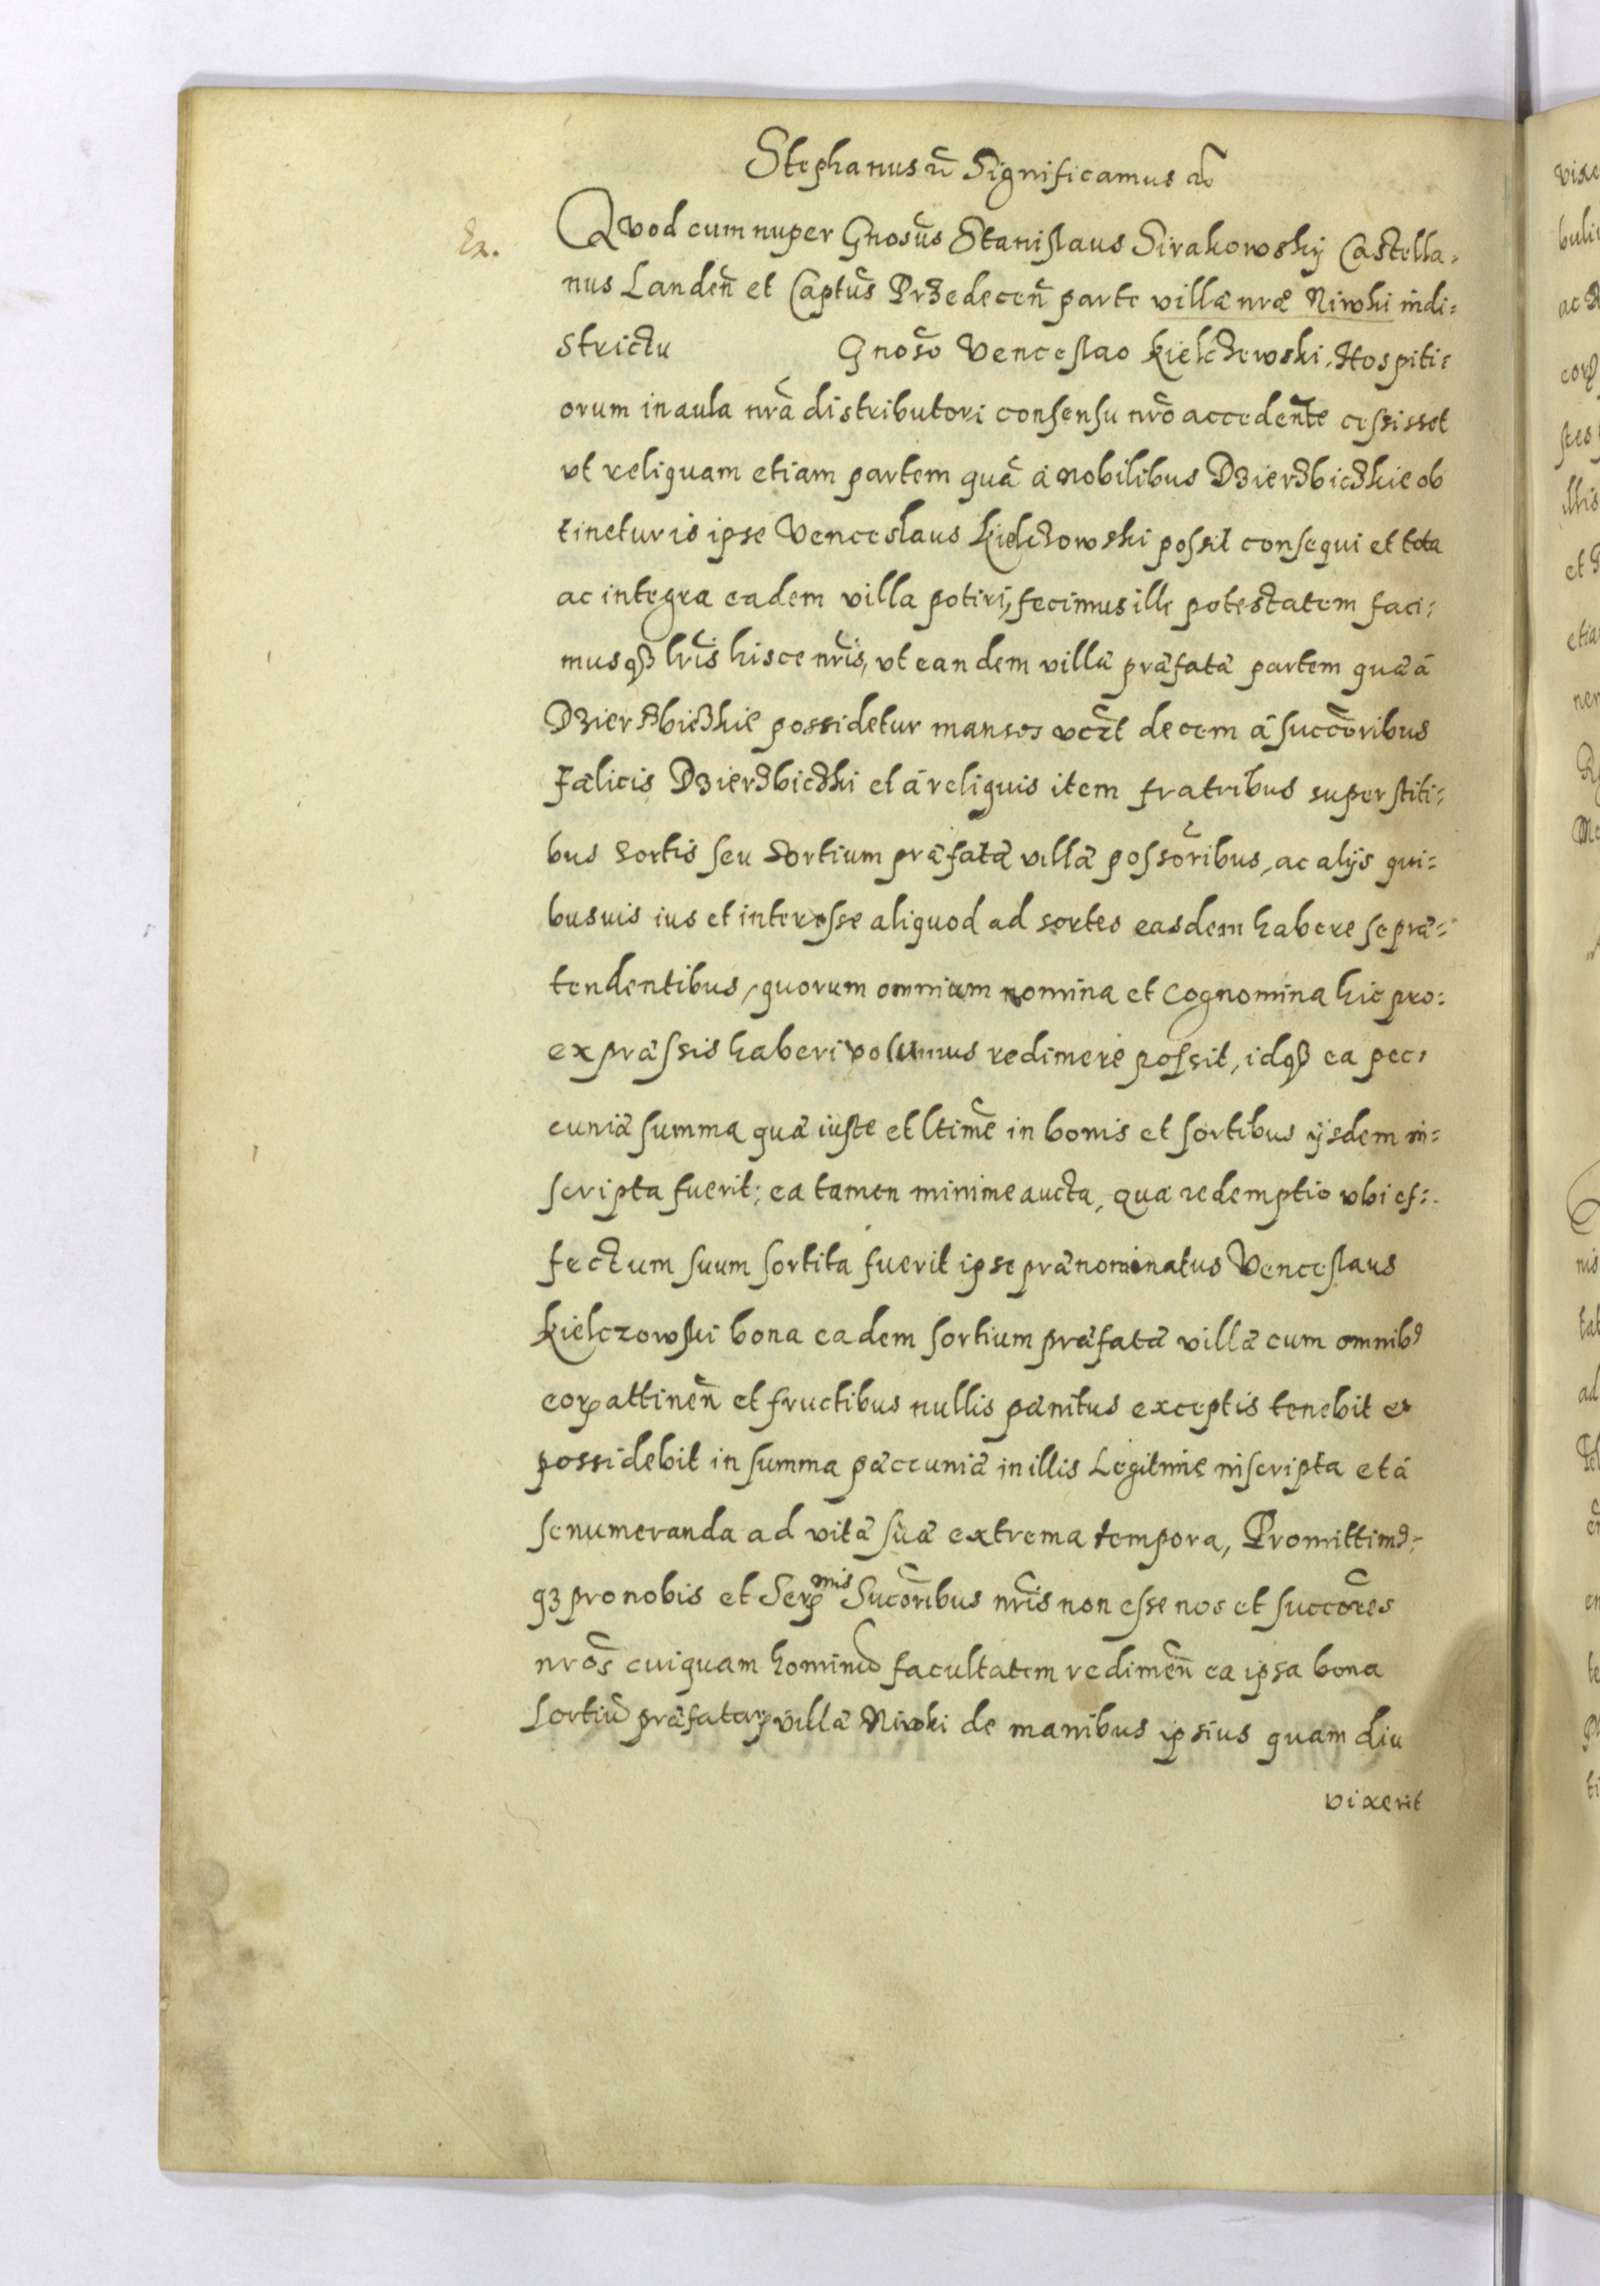 Stephanus etc Significamus etc
Ex.
Quod cum nuper Gnosus Stanislaus Sirakowskÿ Castella-
nus Landen et Captus Przedecen parte villæ nræ Niwki in di-
strictu Gnoso Venceslao Kielczewski, Hospiti-
orum in aula nra distributori consensu nro accedente cessisset
vt reliquam etiam partem quæ à nobilibus Dzierzbiczkie ob
tinetur is ipse Venceslaus Kielczowski possit consequi et tota
ac integra eadem villa potiri, fecimus illi potestatem faci-
musqз lris hisce nris, vt eandem villæ præfatæ partem quæ à
Dzierzbiczkie possidetur mansos vczt decem à succoribus
Fælicis Dzierzbiczki et à reliquis item fratribus superstiti-
bus sortis seu sortium præfatæ villæ possoribus, ac alÿs qui-
busuis ius et interesse aliquod ad sortes easdem habere se præ-
tendentibus, quorum omnium nomina et cognomina hic pro
expræssis haberi volumus redimere possit, idqз ea pec-
cuniæ summa quæ iuste et ltime in bonis et sortibus ÿsdem in-
scripta fuerit; ea tamen minime aucta, quæ redemptio vbi ef-
fectum suum sortita fuerit ipse prænominatus Venceslaus
Kielczowski bona eadem sortium præfatæ villæ cum omnibꝯ
eorꝝ attinen et fructibus nullis pænitus exceptis tenebit et
possidebit in summa pæccuniæ in illis Legitime inscripta et à
se numeranda ad vitæ suæ extrema tempora, Promittimꝯ-
qз pro nobis et Serꝝmis Sucoribus nris non esse nos et succores
nros cuiquam hominũ facultatem redimen ea ipsa bona
Sortiũ præfatarꝝ villæ Niwki de manibus ipsius quam diu
vixerit